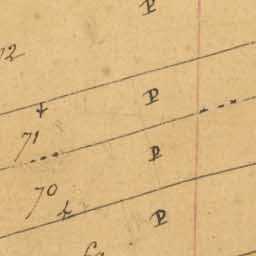 P
72
P
71
P
70
P